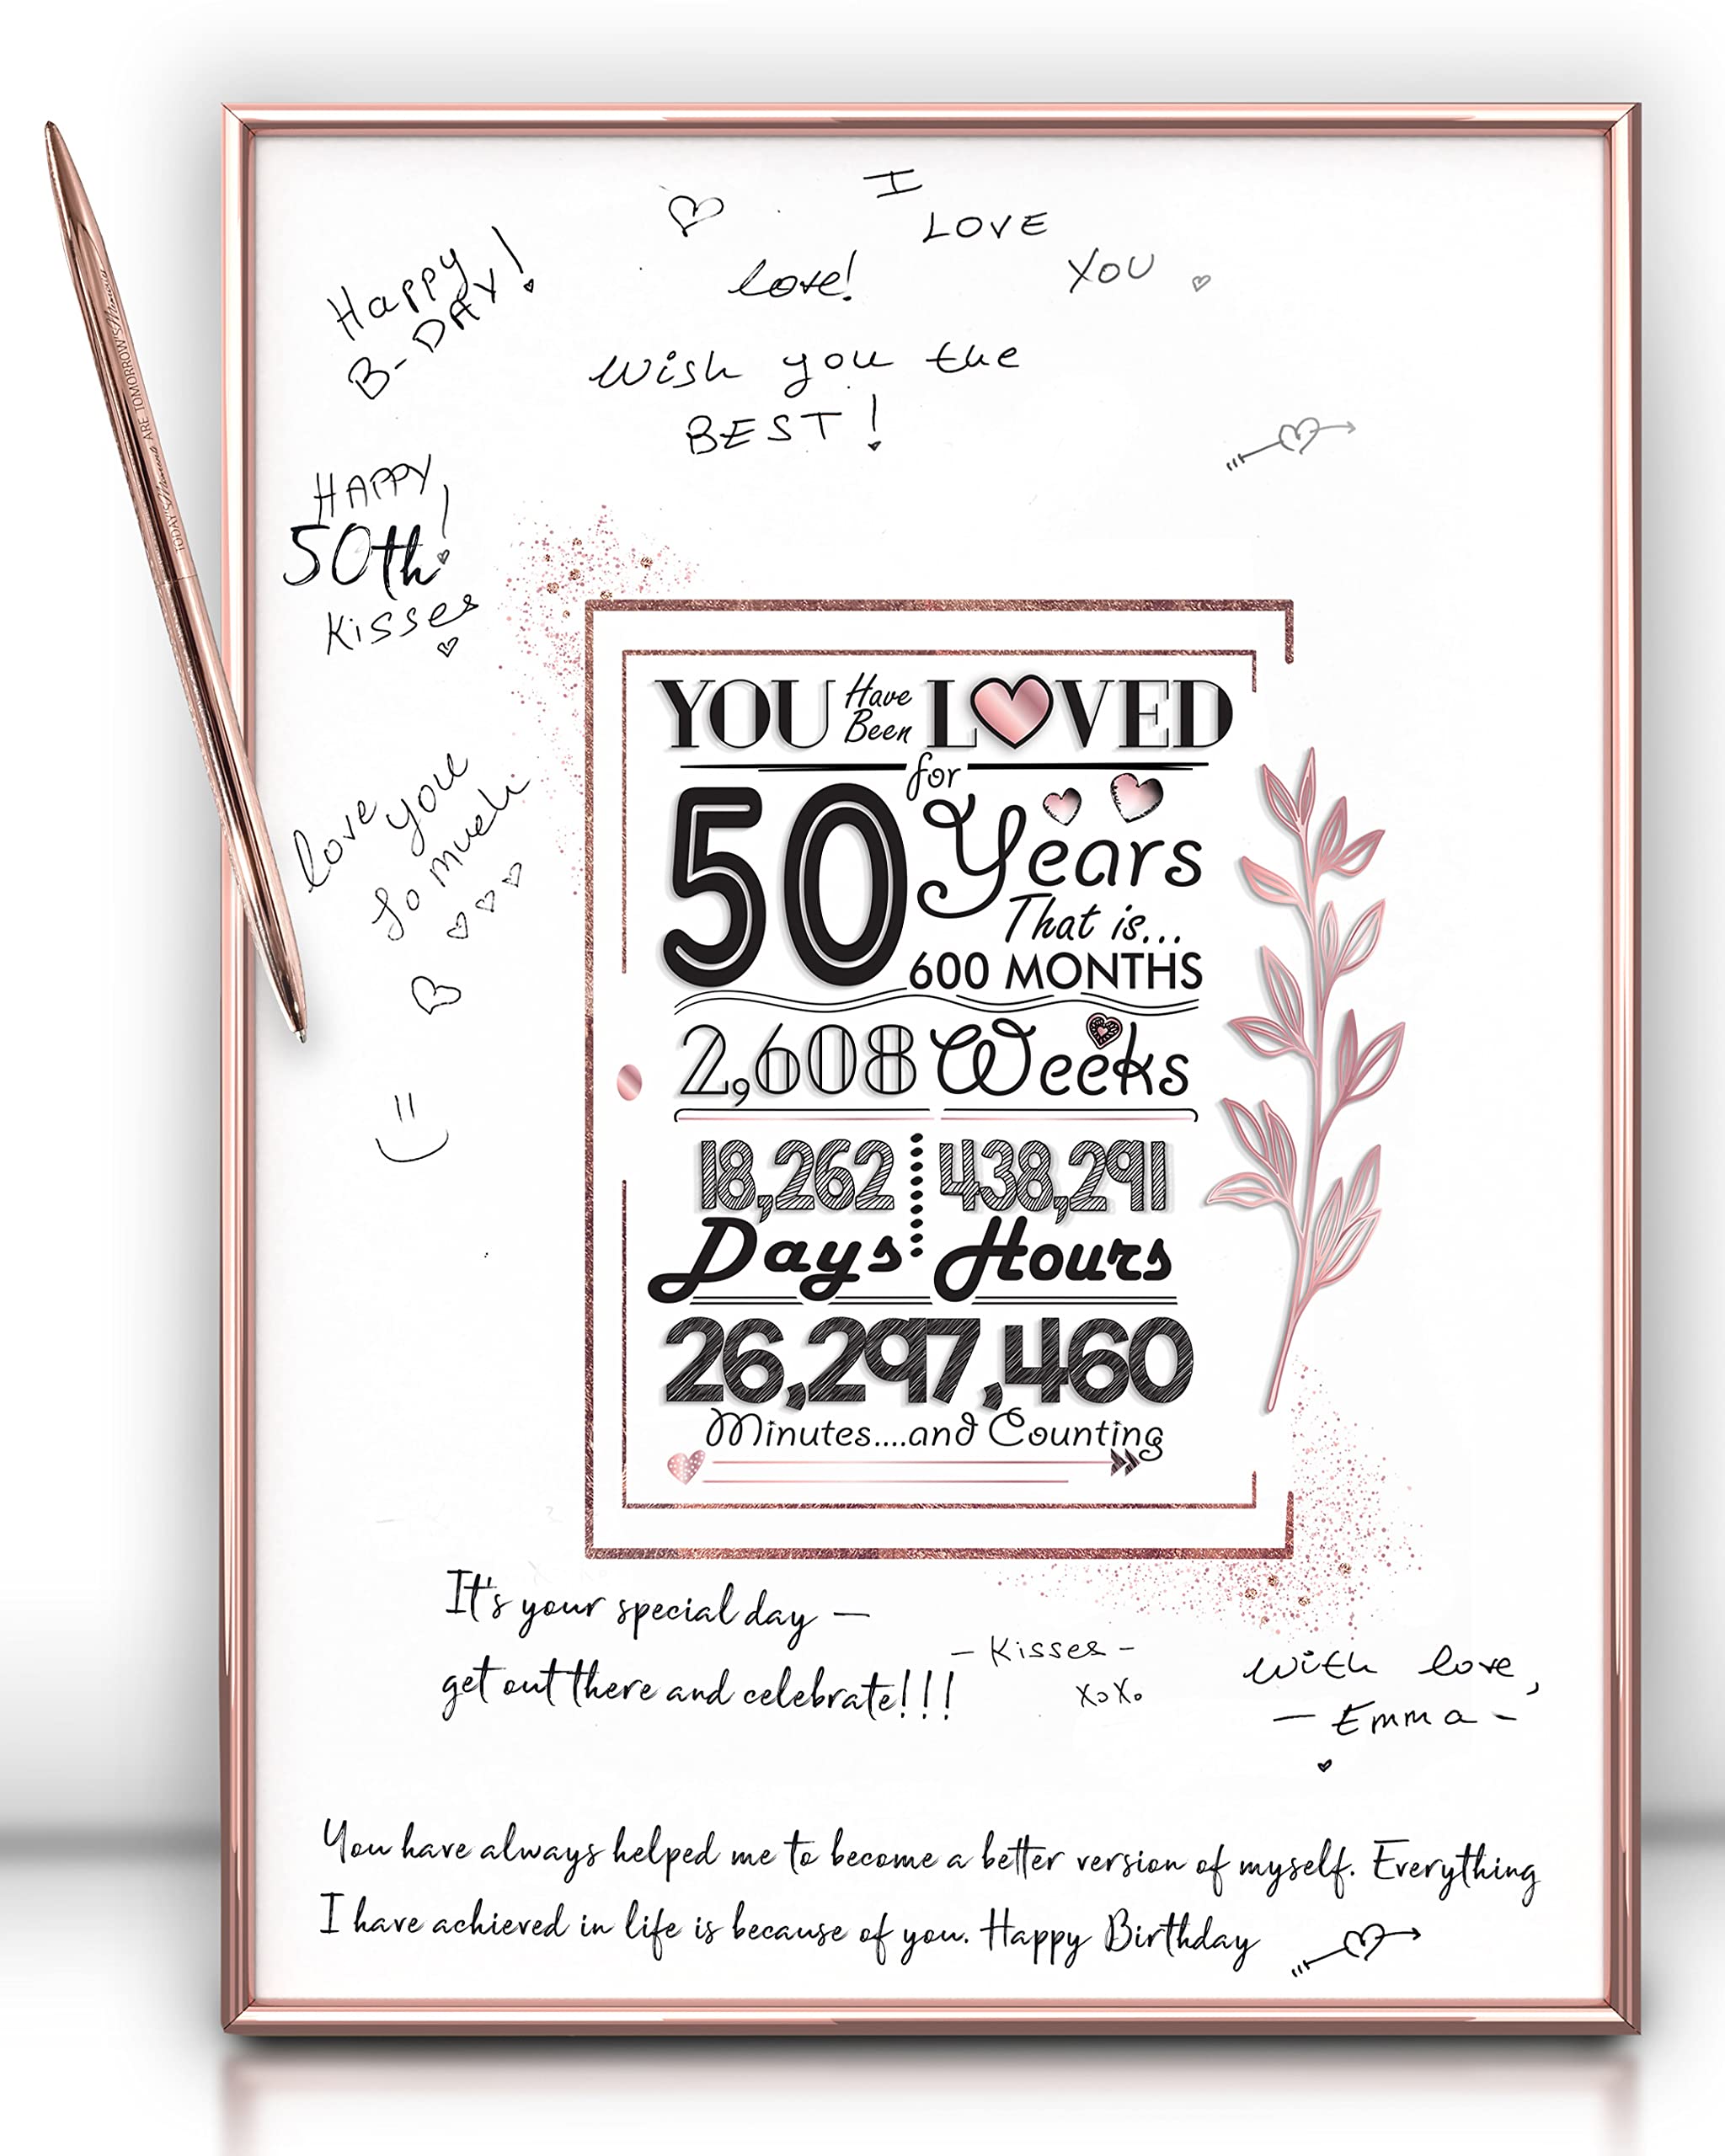 I
LOVE
YOU
Happy
B-DAY!
love!
Wish you the
BEST!
HAPPY
50th!
Kisses
love you
so much
YOU Have Been LOVED
for
50 Years
That is...
600 MONTHS
2,608 Weeks
18,262 438,291
Days Hours
26,297,460
Minutes....and Counting
It's your special day —
get out there and celebrate!!!
- Kisses -
XoXo
With love,
- Emma -
You have always helped me to become a better version of myself. Everything
I have achieved in life is because of you. Happy Birthday
TODAY'S Moments ARE TOMORROW'S Memories